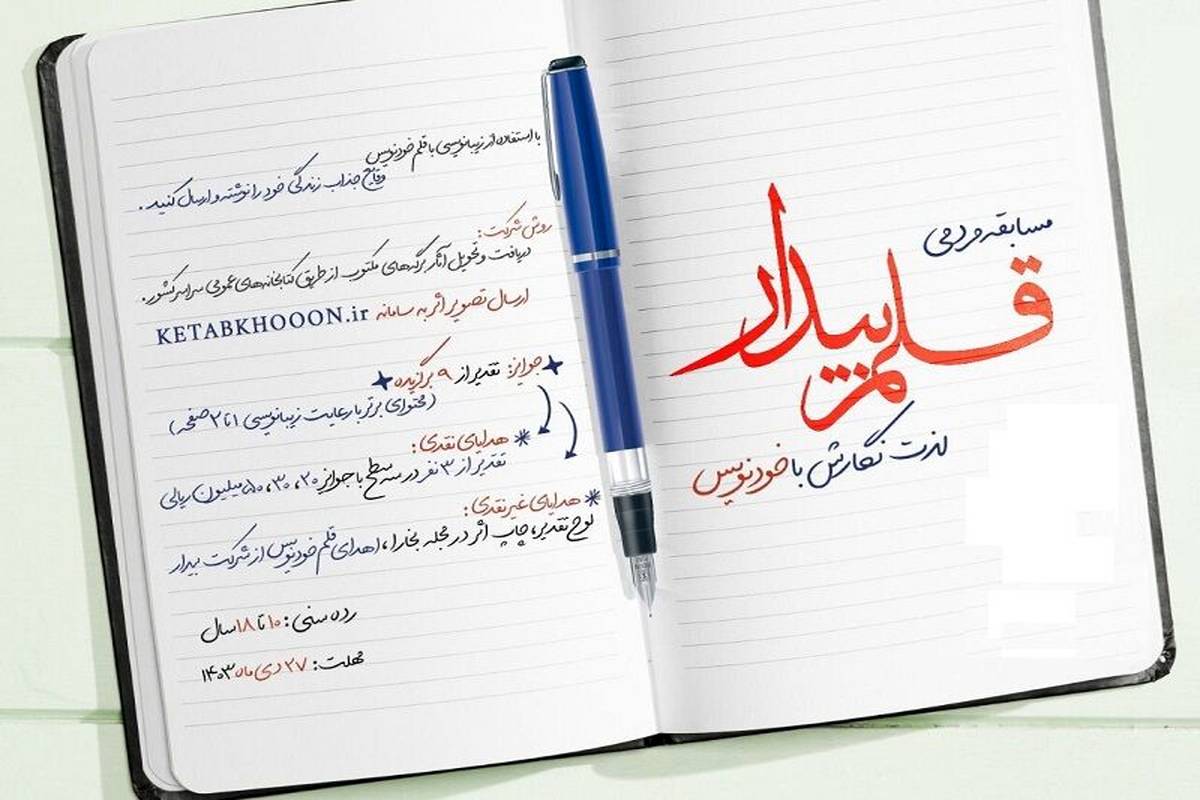 مسابقه مردمی
قلم بیدار
لذت نگارش با خودنویس
با استفاده از زیبانویسی با قلم خودنویس
وقایع جذاب زندگی خود را نوشته و ارسال کنید.
روش شرکت:
دریافت و تحویل آثار برگه‌های مکتوب از طریق کتابخانه‌های عمومی سراسر کشور.
ارسال تصویر اثر به سامانه KETABKHOOON.ir
جوایز: تقدیر از ۹ برگزیده
(محتوای برتر با رعایت زیبانویسی ۱ تا ۲ صفحه)
هدایای نقدی:
تقدیر از ۳ نفر در سه سطح با جوایز ۲۰، ۳۰، ۵۰ میلیون ریالی
هدایای غیرنقدی:
لوح تقدیر، چاپ اثر در مجله بخارا، اهدای قلم خودنویس از شرکت بیدار
رده سنی: ۱۰ تا ۱۸ سال
مهلت: ۲۷ دی ماه ۱۴۰۳